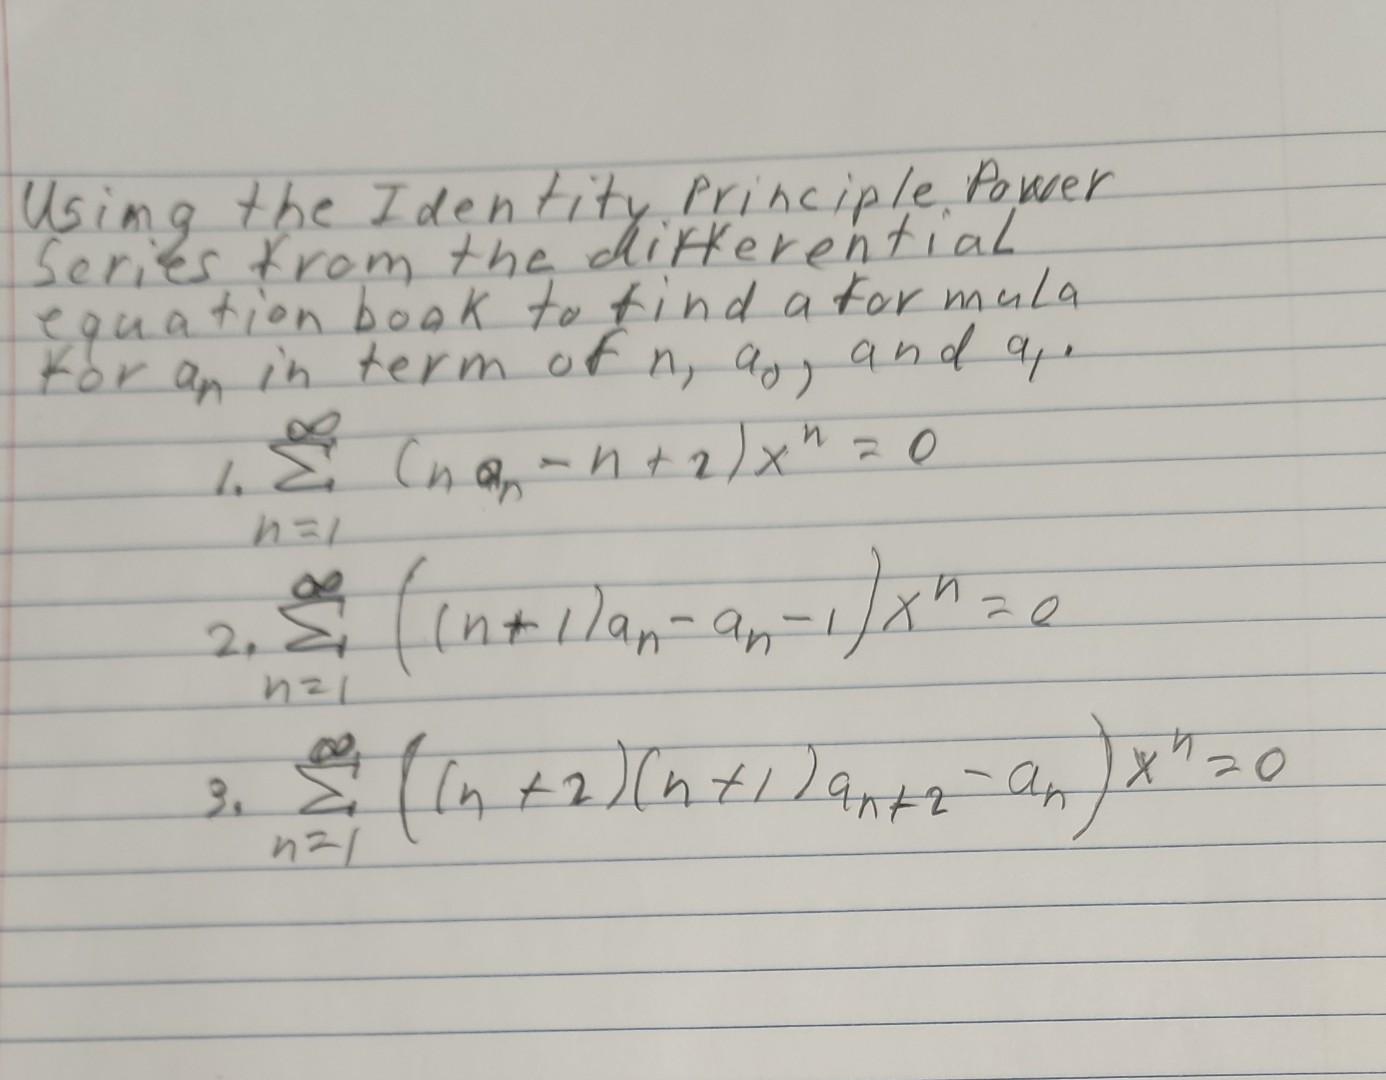 Using the Identity Principle Power
Series from the differential
equation book to find a formula
for aₙ in term of n, a₀, and a₁.
1. ∑_{n=1}^{∞} (n aₙ - n + 2) xⁿ = 0
2. ∑_{n=1}^{∞} ((n+1)aₙ - aₙ - 1) xⁿ = 0
3. ∑_{n=1}^{∞} ((n+2)(n+1) aₙ₊₂ - aₙ) xⁿ = 0